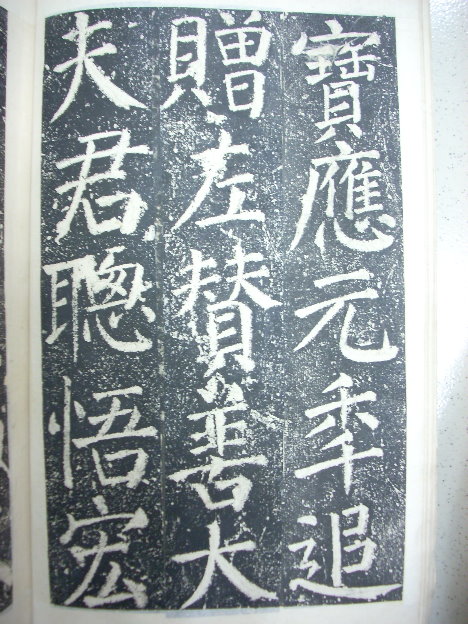 寶應元年追
贈左贊善大
夫君聰悟宏